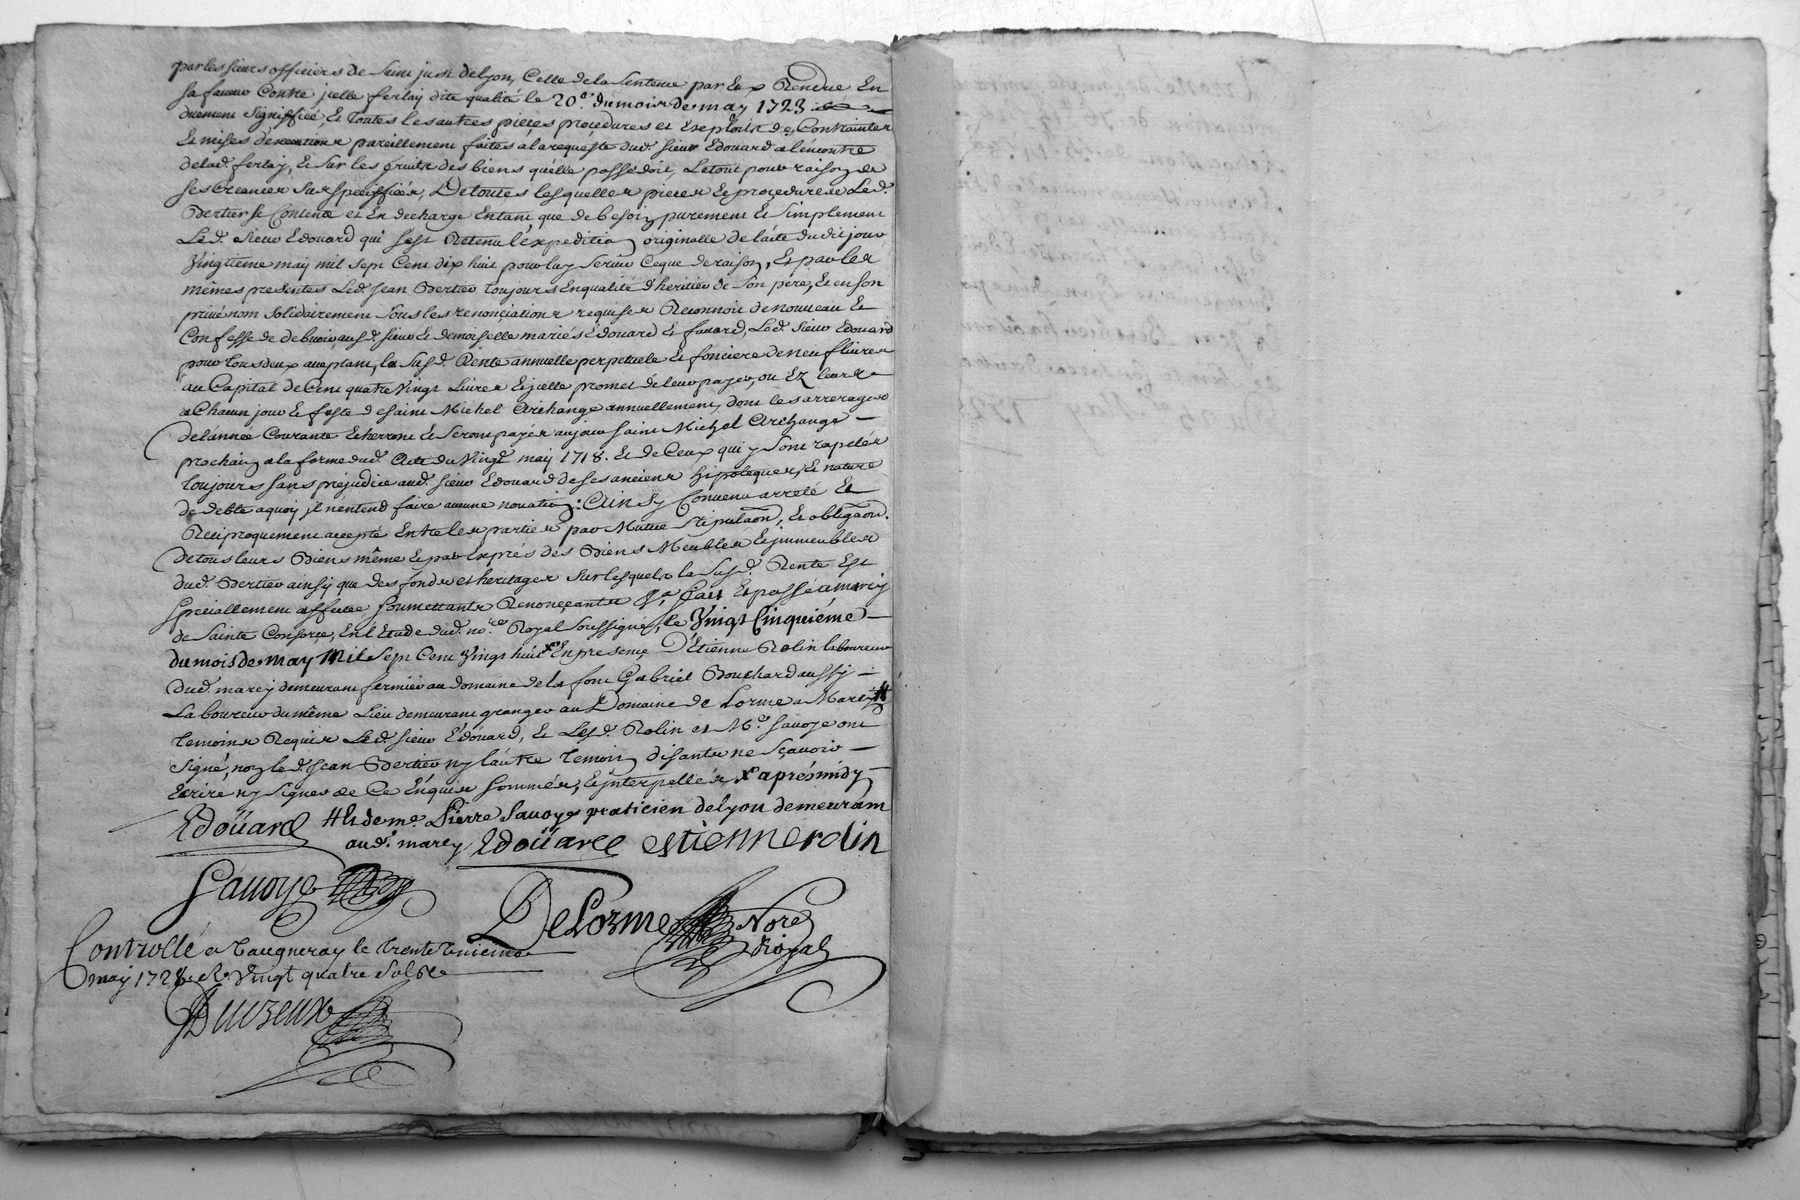 par les sieurs officiers de Saint just de lyon, Celle de la Sentence par Eux Rendue En
sa faveur Contre jcelle ferlay dite qualité le 20.e du mois de may 1723
duement Signiffiée Et Toutes les autres pieces procedures et Exploits de Contraintes
Et mises d'execution pareillement faites a la requeste dud. sieur Edouard a l'encontre
de lad. ferlay, Et sur les fruits des biens qu'elle possedoit, Le tout pour raison de
ses Creances Susspeciffiées, De toutes lesquelles pieces Et procedures Led.
Bertier se Contente et En decharge Entant que de besoin purement Et Simplement
Led. Sieur Edouard qui s'est Retenu l'expedition originalle de l'acte du dit jour
Vingtieme may mil Sept Cent dix huit pour luy Servir Ce que de raison, Et par les
mêmes presentes Led. Jean Bertier toujours En qualité d'heritier de Son pere, Et en son
privé nom solidairement Sous les renonciations requises Reconnoit de nouveau Et
Confesse de debvoir, ausd. sieur Et demoiselle mariés Edouard Et favard, Led. sieur Edouard
pour tous deux acceptant, la Susd. Rente annuelle perpetuelle Et fonciere de neuf livres
au Capital de Cent quatre Vingt Livres Et jcelle promet de leur payer, ou Ez leurs
a Chacun jour Et feste de Saint Michel Archange annuellement, dont les arrerages
de l'année Courante Echerront Et Seront payés au jour saint Michel Archange
prochain a la forme dud. Acte du Vingt may 1718. Et de Ceux qui y Sont rapelés
Toujours Sans prejudice aud. sieur Edouard de ses anciens hipoteques, Et nature
de debte a quoy jl n'entend faire aucune novation: Ainsy Convenu arreté Et
Reciproquement accepté Entre les parties par Mutue Stipulaon, Et obligaon.
De tous leurs Biens même Et par Exprés des Biens Meubles Et jmmeubles
dud. Bertier ainsy que des fonds et heritages sur lesquels la Susd. Rente Est
Speciallement affectée, soumettants Renonçants &.a Fait Et passé a marcy
de Sainte Consorce, En l'Etude dud. no.re Royal Soussigné, le Vingt Cinquiéme
du mois de May Mil Sept Cent Vingt huit X En presence D'Etienne Rolin laboureur
dud. marcy demeurant fermier au domaine de la font Gabriel Bouchard aussy
Laboureur du même Lieu demeurant granger au Domaine de Lorme a Marcy #
Temoins Requis Led. sieur Edoüard, Et Lesd. Rolin et M.e Savoye ont
Signé, non le d. Jean Bertier ny l'autre Temoin disants ne Sçavoir
Ecrire ny Signer de Ce Enquis Sommés, Et jnterpellés X aprés midy
Edoüard # Et de me. Pierre Savoye praticien de lyon demeurant
aud. marcy Edoüard estienne rolin
Savoye
DeLorme Nore
Royal
Controllé a Vaugneray le trente unieme
may 1728 R. Vingt quatre Sols